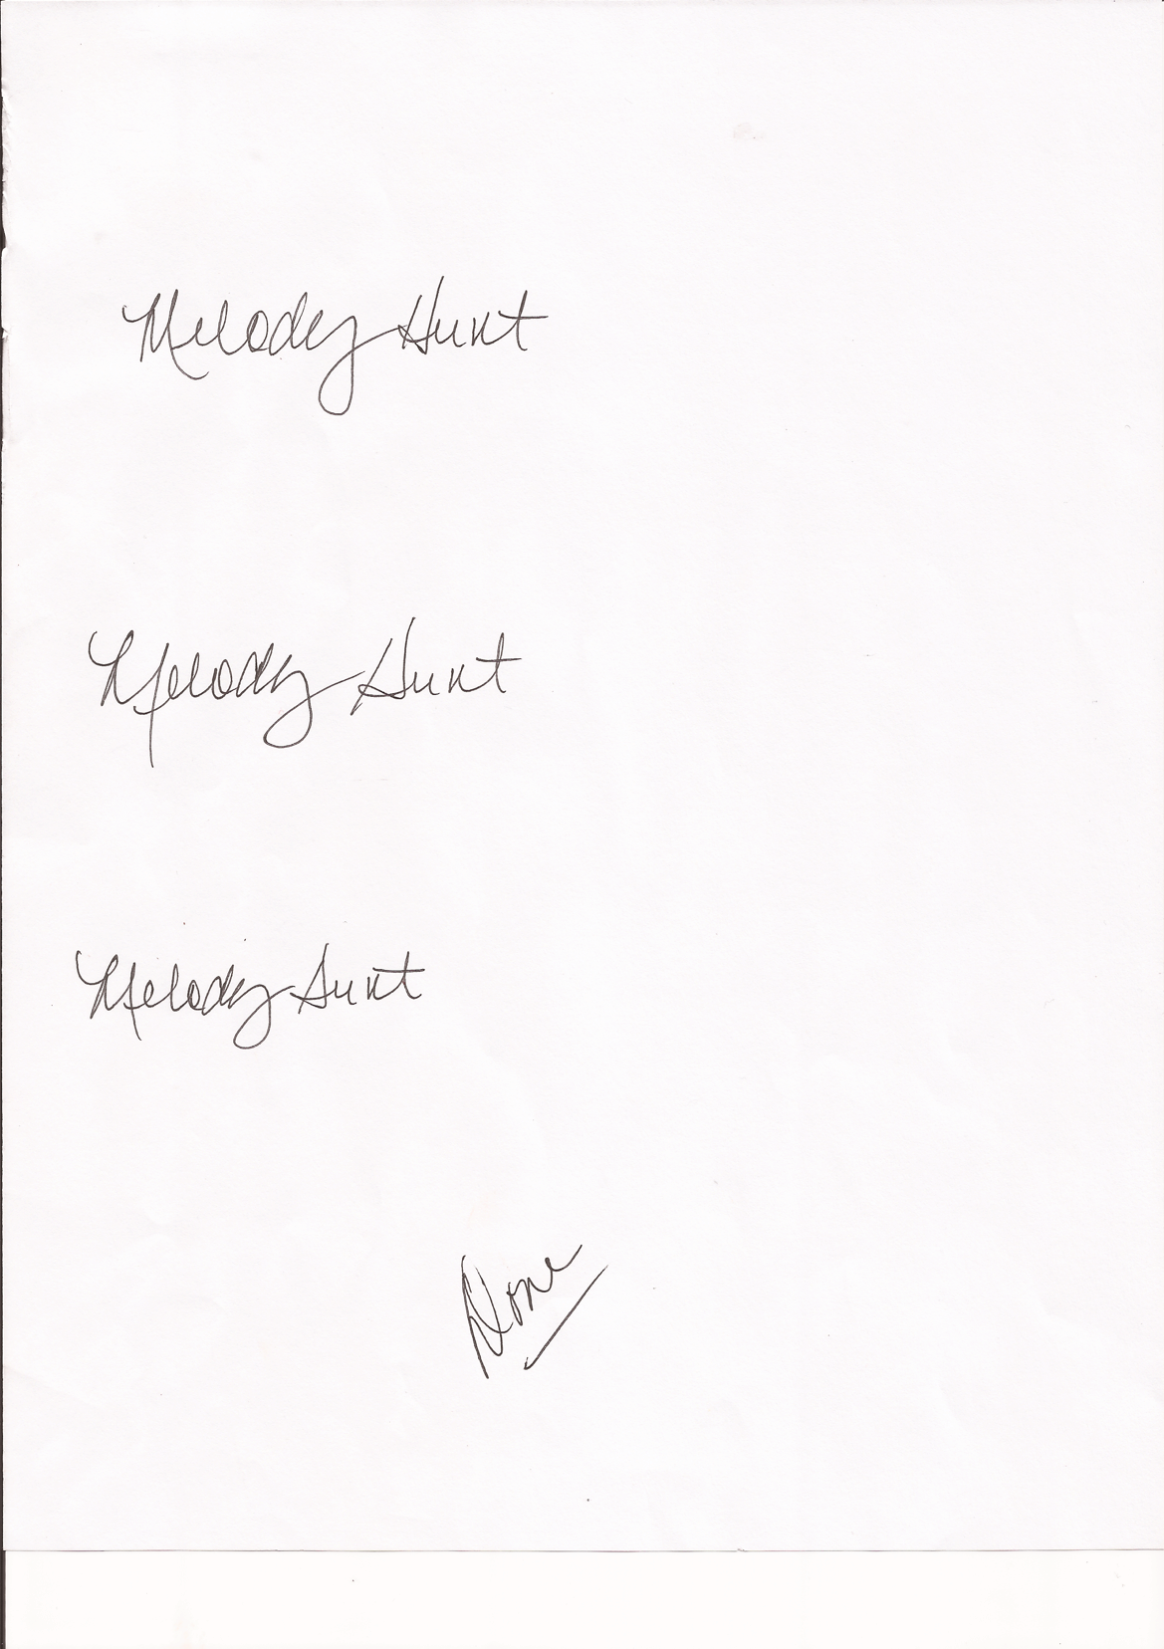 Melody Hunt
Melody Hunt
Melody Hunt
Done